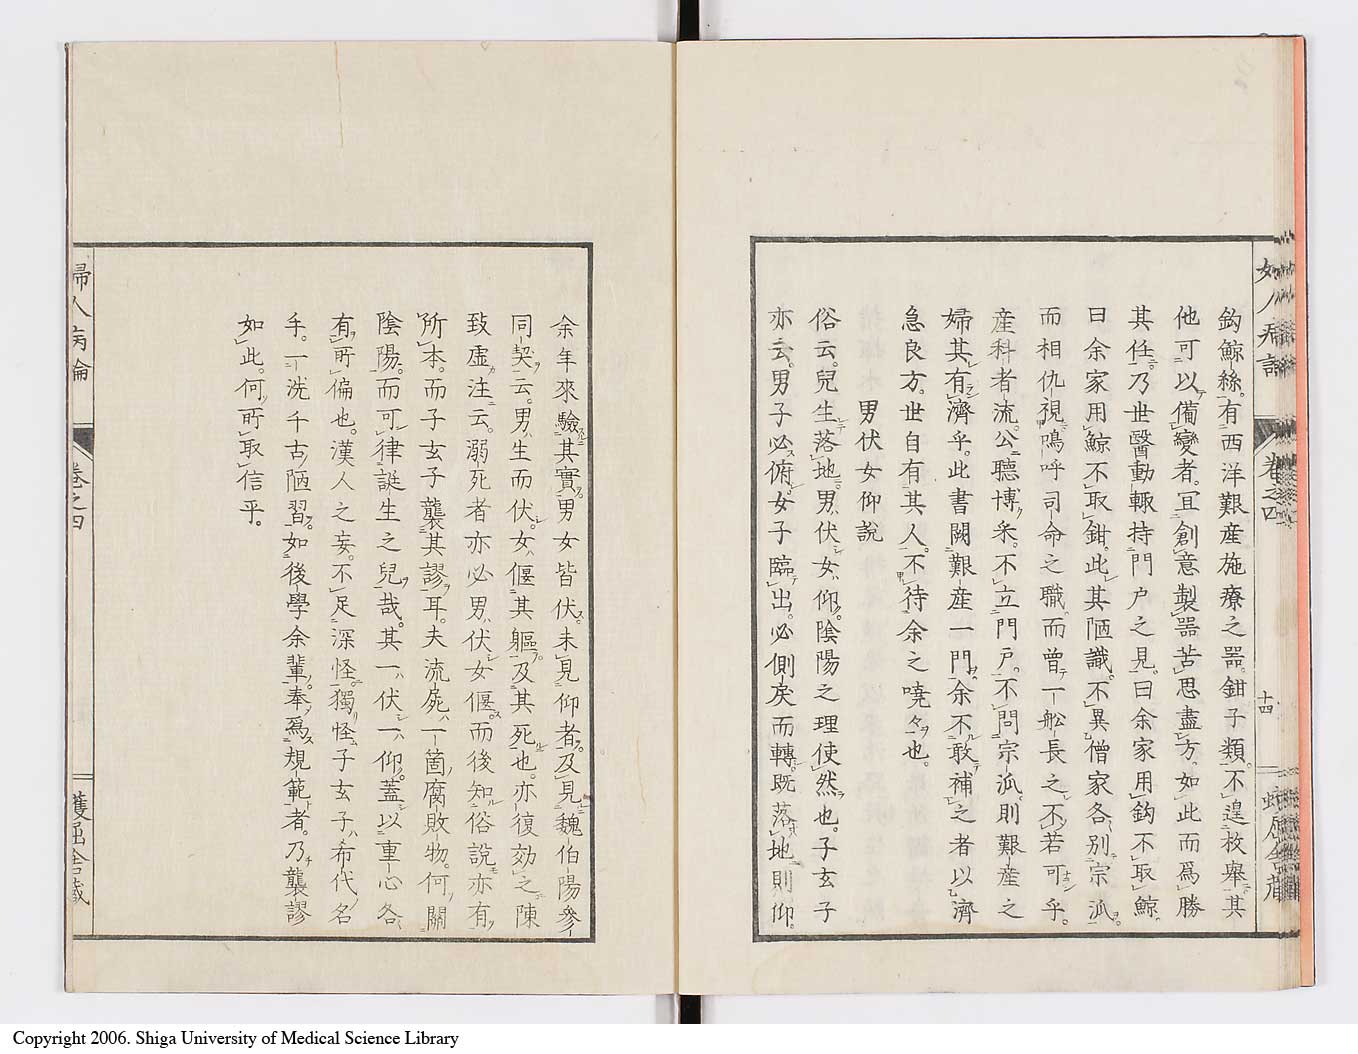 鈎鯨絲。有西洋艱産施療之器。鉗子類。不遑枚舉。其
他可以備變者。宜創意製器苦思盡方。如此而爲勝
其任。乃世醫動輙持門戸之見。曰余家用鈎不取鯨。
曰余家用鯨不取鉗。此其陋識。不異僧家各別宗派。
而相仇視。嗚呼司命之職。而曾一舩長之不若可乎。
産科者流。公聽博采。不立門戸。不問宗派。則艱産之
婦其有濟乎。此書闕艱産一門。余不敢補之者以濟
急良方。世自有其人。不待余之嘵々也。
男伏女仰説
俗云。兒生落地。男伏女仰。陰陽之理使然也。子玄子
亦云。男子必俯。女子臨出。必側戻而轉。既落地則仰。
余年來驗其實。男女皆伏。未見仰者。及見魏伯陽參
同契云。男生而伏。女偃其軀。及其死也。亦復効之。陳
致虚注云。溺死者亦必男伏女偃。而後知俗説亦有
所本。而子玄子襲其謬耳。夫流屍一箇腐敗物。何關
陰陽。而可律誕生之兒哉。其一伏一仰。蓋以重心各
有所偏也。漢人之妄。不足深怪。獨怪子玄子希代名
手。一洗千古陋習。如後學余輩。奉爲規範者。乃襲謬
如此。何所取信乎。
婦人病論
卷之四
十四
護屈舍藏
Copyright 2006. Shiga University of Medical Science Library